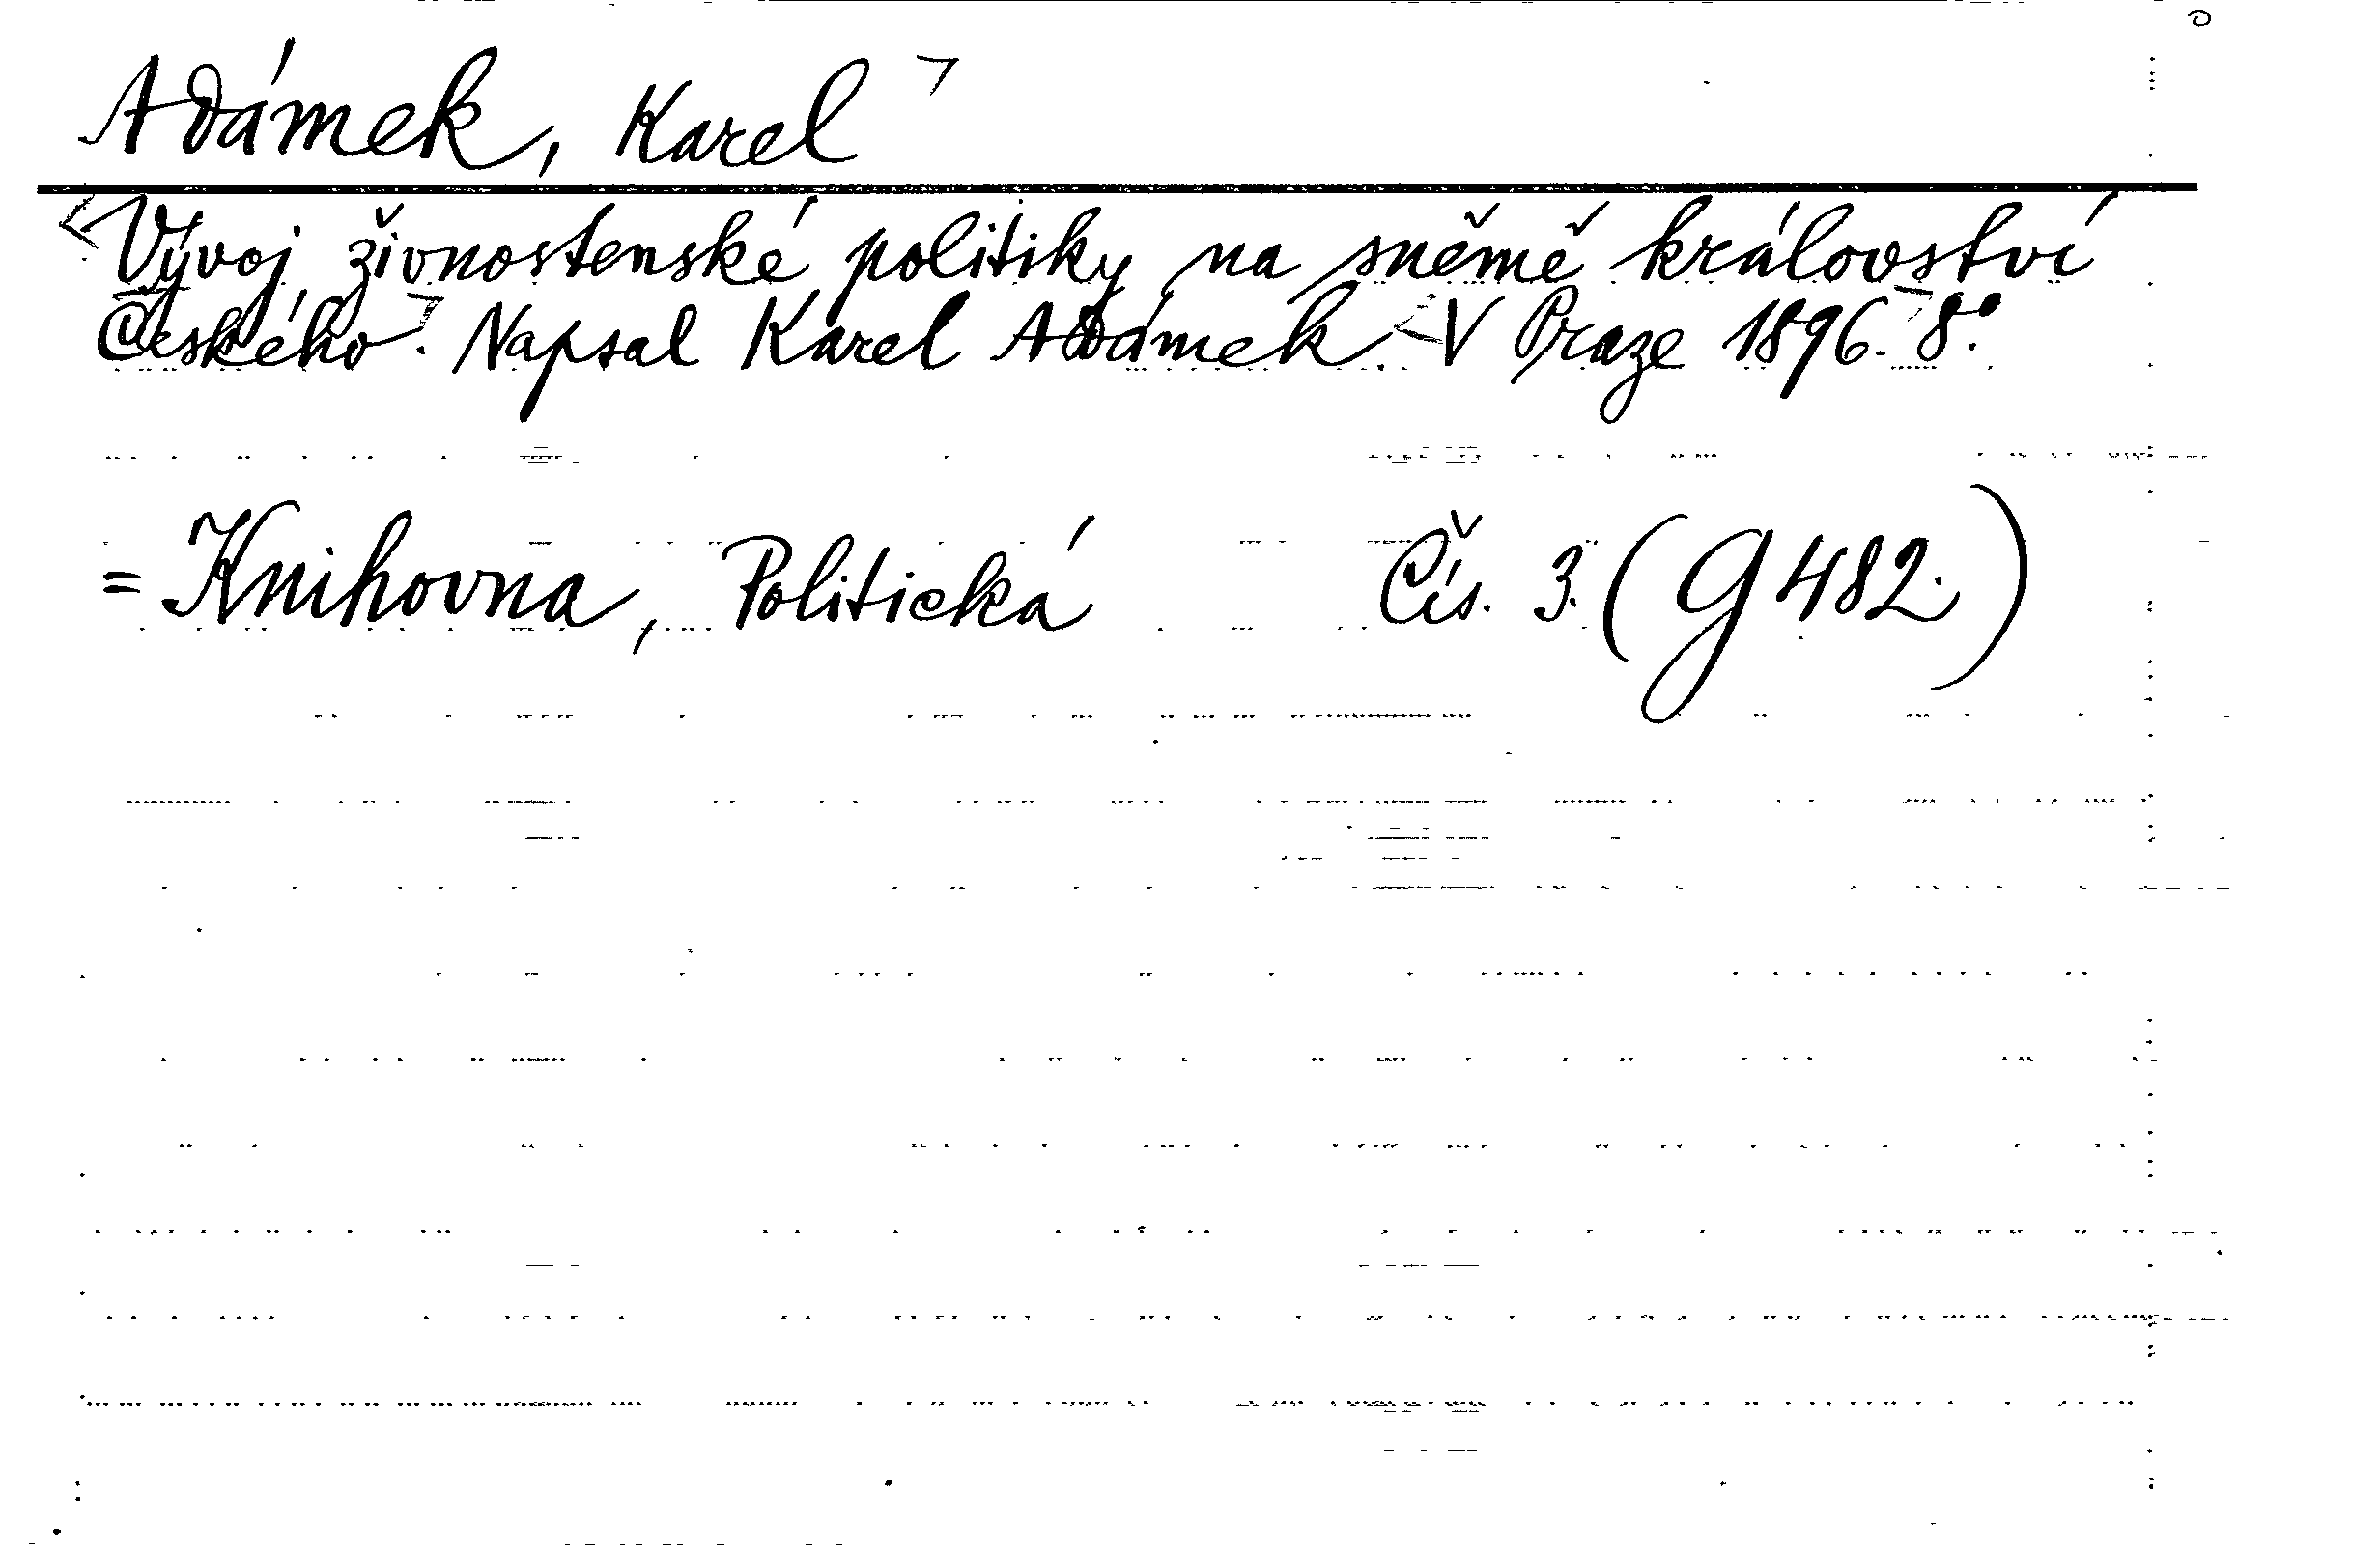 Adámek, Karel
Vývoj živnostenské politiky na sněmě království
Českého. Napsal Karel Adámek. V Praze 1896. 8°.
= Knihovna, Politická Čís. 3. (G 482.)